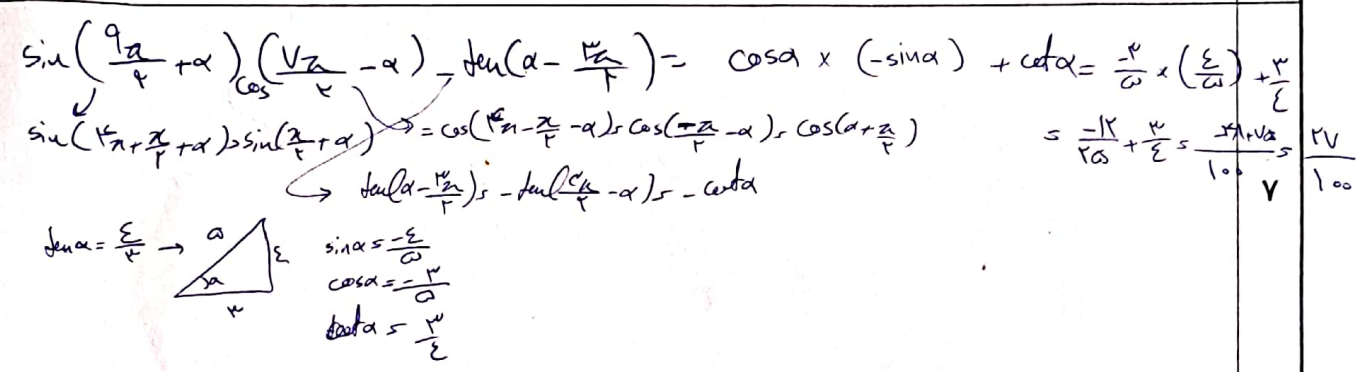 sin(۹π/۲ + α) cos(۷π/۲ - α) - tan(α - ۳π/۲) = cosα × (-sinα) + cotα = -۳/۵ × (۴/۵) + ۳/۴
sin(۴π + π/۲ + α) = sin(π/۲ + α) = cos(۴π - π/۲ - α) = cos(-π/۲ - α) = cos(α + π/۲) = -۱۲/۲۵ + ۳/۴ = -۴۸+۷۵/۱۰۰ = ۲۷/۱۰۰
tan(α - ۳π/۲) = -tan(۳π/۲ - α) = -cotα
۷
tanα = ۴/۳ → ۵ ۴ α ۳
sinα = -۴/۵
cosα = -۳/۵
cotα = ۳/۴